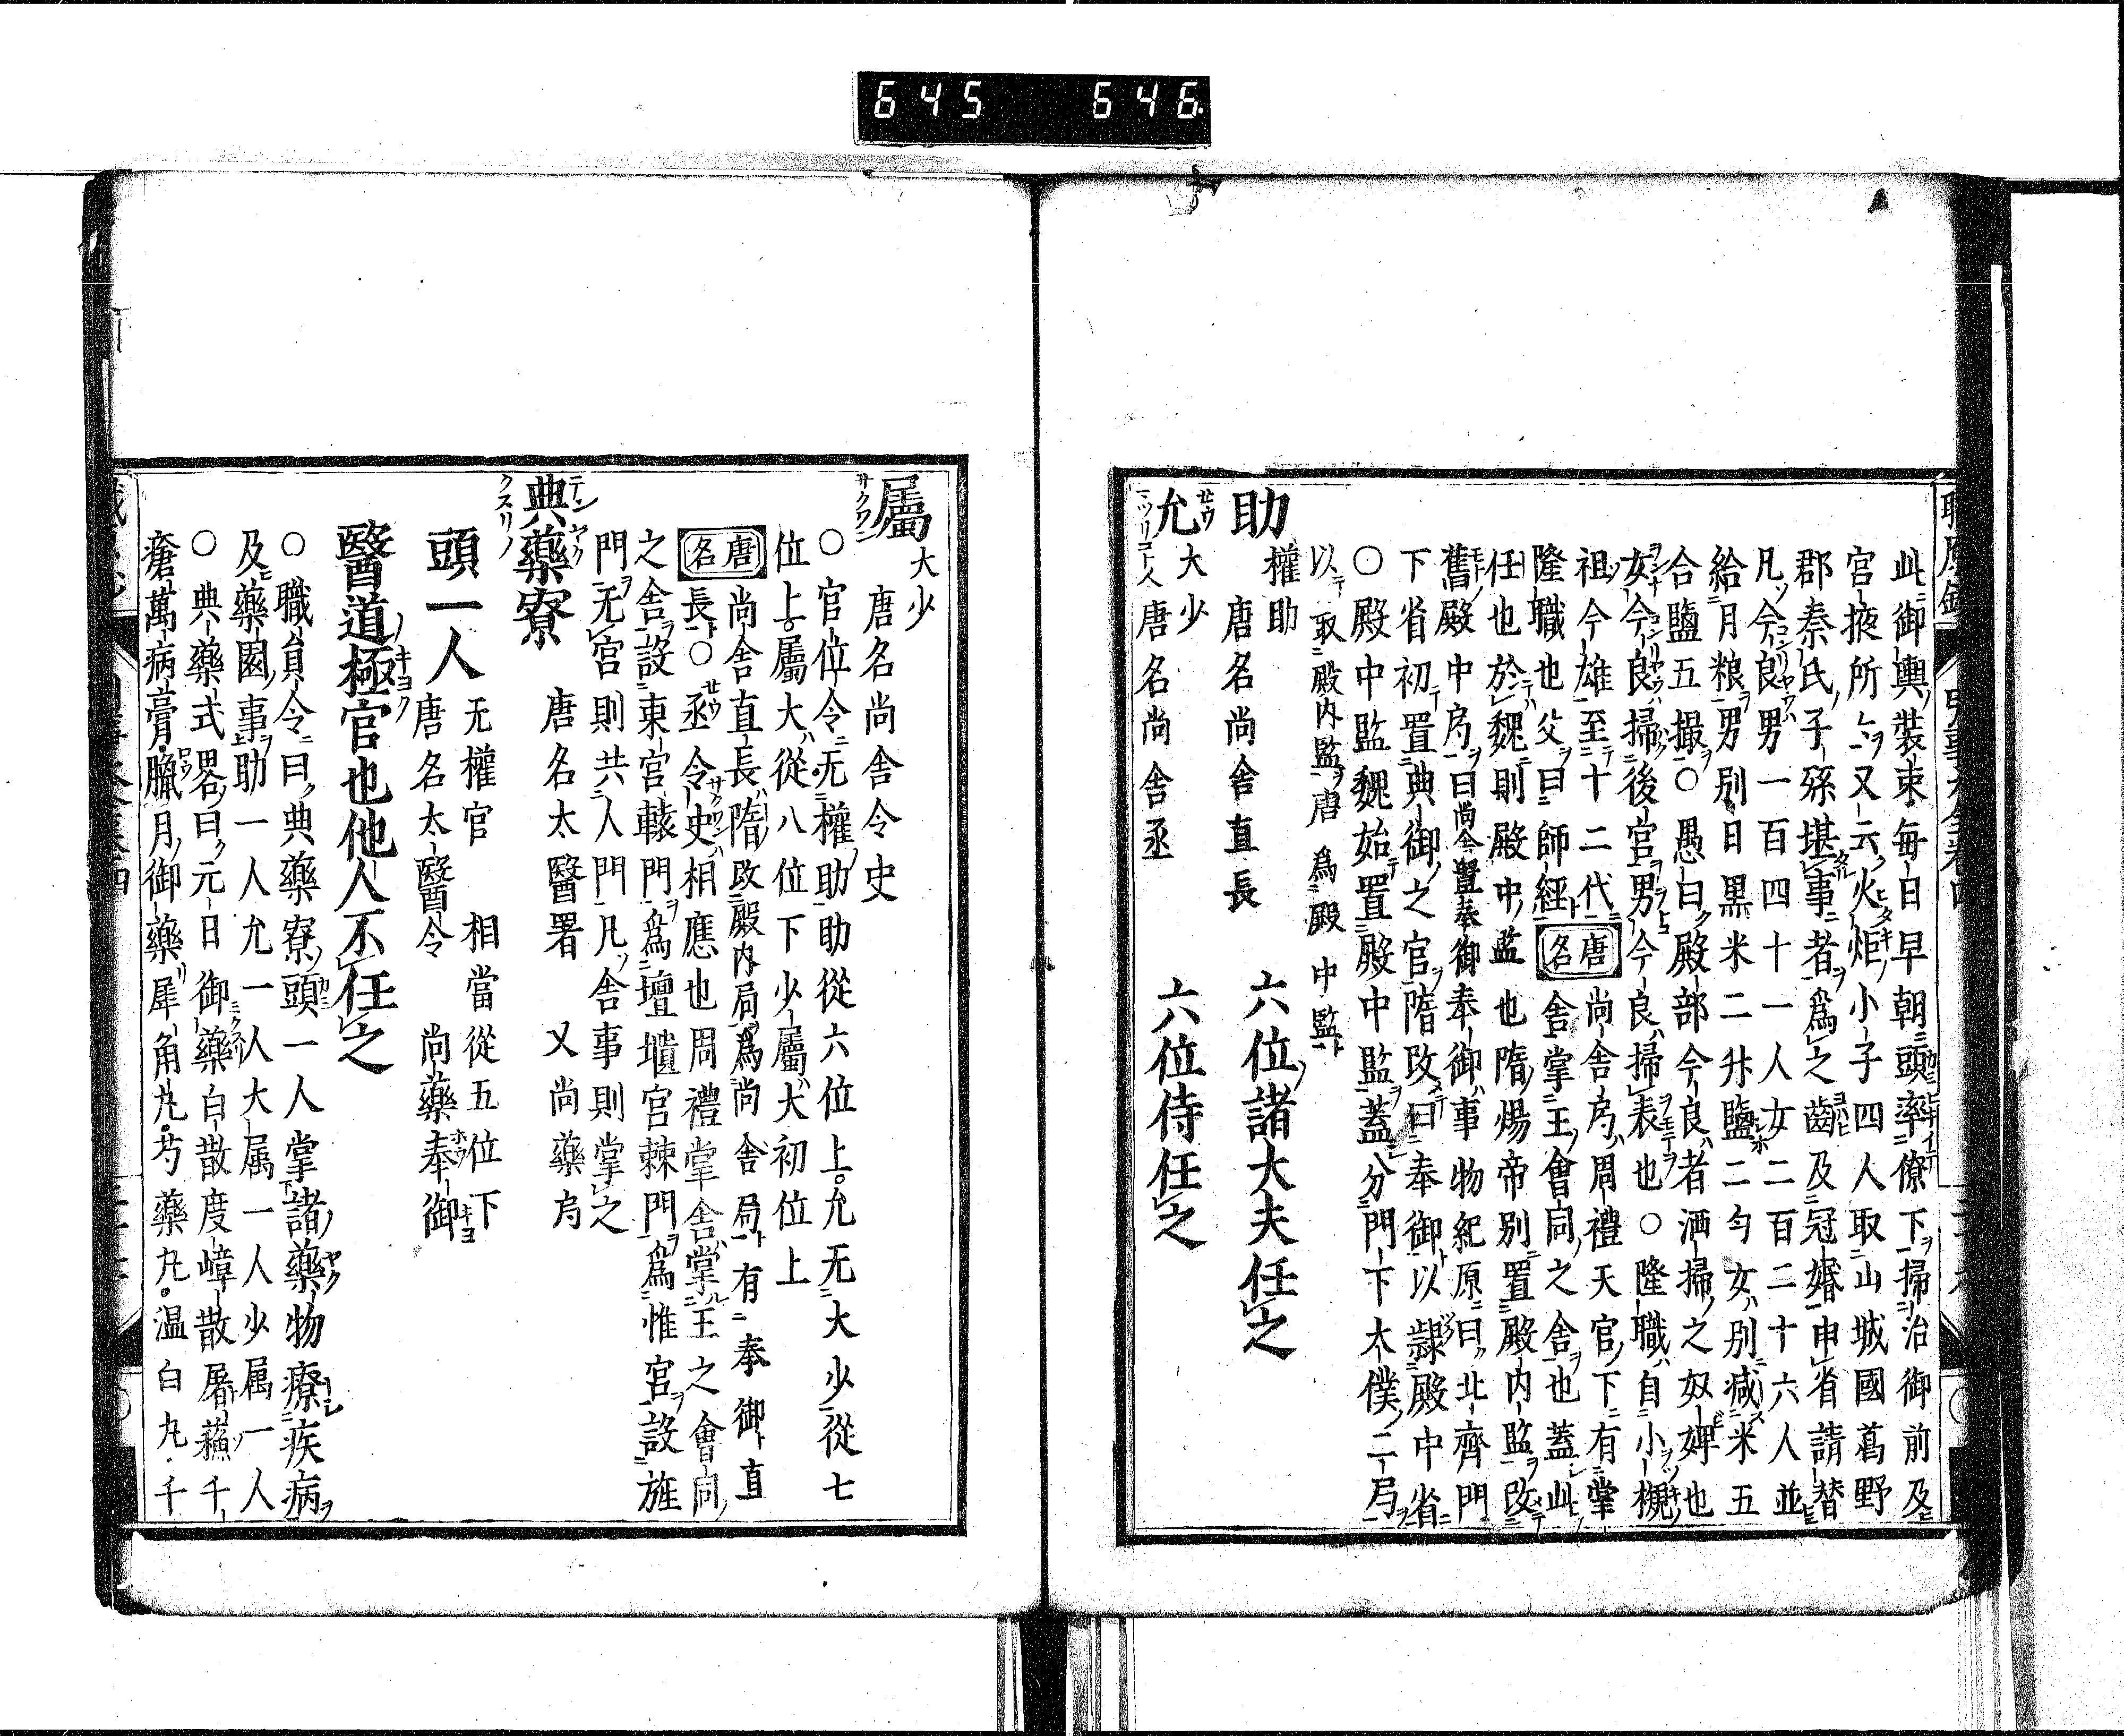 645 646
此御輿裝束每日早朝頭率僚下掃治御前及
官掖所々又云火炬小子四人取山城國葛野
郡秦氏子孫堪事者爲之齒及冠婚申省請替
凡今良男一百四十一人女二百二十六人並
給月粮男別日黒米二升鹽二勺女別減米五
合鹽五撮○愚曰殿部今良者洒掃之奴婢也
女今良掃後宮男今良掃表也○隆職自小槻
祖今雄至十二代
隆職也父曰師經
唐名
尚舍局周禮天官下有掌
舍掌王會同之舍也蓋此
任也於魏則殿中監也隋煬帝別置殿内監改
舊殿中局曰尚舍置奉御奉御事物紀原曰北齊門
下省初置典御之官隋改曰奉御以隷殿中省
○殿中監魏始置殿中監蓋分門下太僕二局
以取殿内監唐爲殿中監
助 權助 唐名尚舍直長 六位諸大夫任之
允 大少 唐名尚舍丞 六位侍任之
屬 大少 唐名尚舍令史
○官位令无權助助從六位上允无大少從七
位上屬大從八位下少屬大初位上
唐名
尚舍直長隋改殿内局爲尚舍局有奉御直
長○丞令史相應也周禮掌舍掌王之會同
之舍設東宮轅門爲壇壝宮棘門爲惟宮設旌
門无宮則共人門凡舍事則掌之
典藥寮 唐名太醫署 又尚藥局
頭一人 无權官 相當從五位下
唐名太醫令 尚藥奉御
醫道極官也他人不任之
○職員令曰典藥寮頭一人掌諸藥物療疾病
及藥園事助一人允一人大属一人少属一人
○典藥式畧曰元日御藥白散度嶂散屠蘓千
瘡萬病膏臘月御藥犀角丸芍藥丸温白丸千